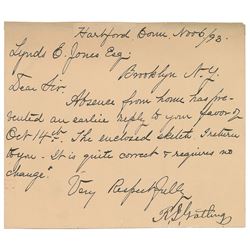 Hartford Conn Nov 6/93.
Lynds E. Jones Esq.
Brooklyn N.Y.
Dear Sir,
Absence from home has pre-
vented an earlier reply to your favor of
Oct 14th. The enclosed sketch I return
to you. It is quite correct & requires no
change".
Very Respectfully
R. J. Gatling